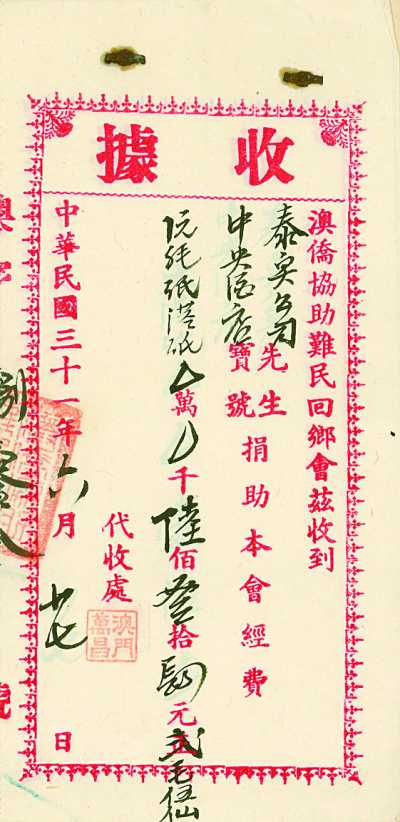 收據
澳僑協助難民回鄉會茲收到
泰興公司
中央酒店
先生
寶號
捐助本會經費
港紙 萬 千陸佰叁拾肆元弍毛伍仙
代收處
澳門萬昌
中華民國三十一年六月廿七日